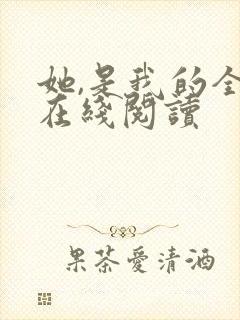 她,是我的全
在綫閱讀
果茶愛清酒